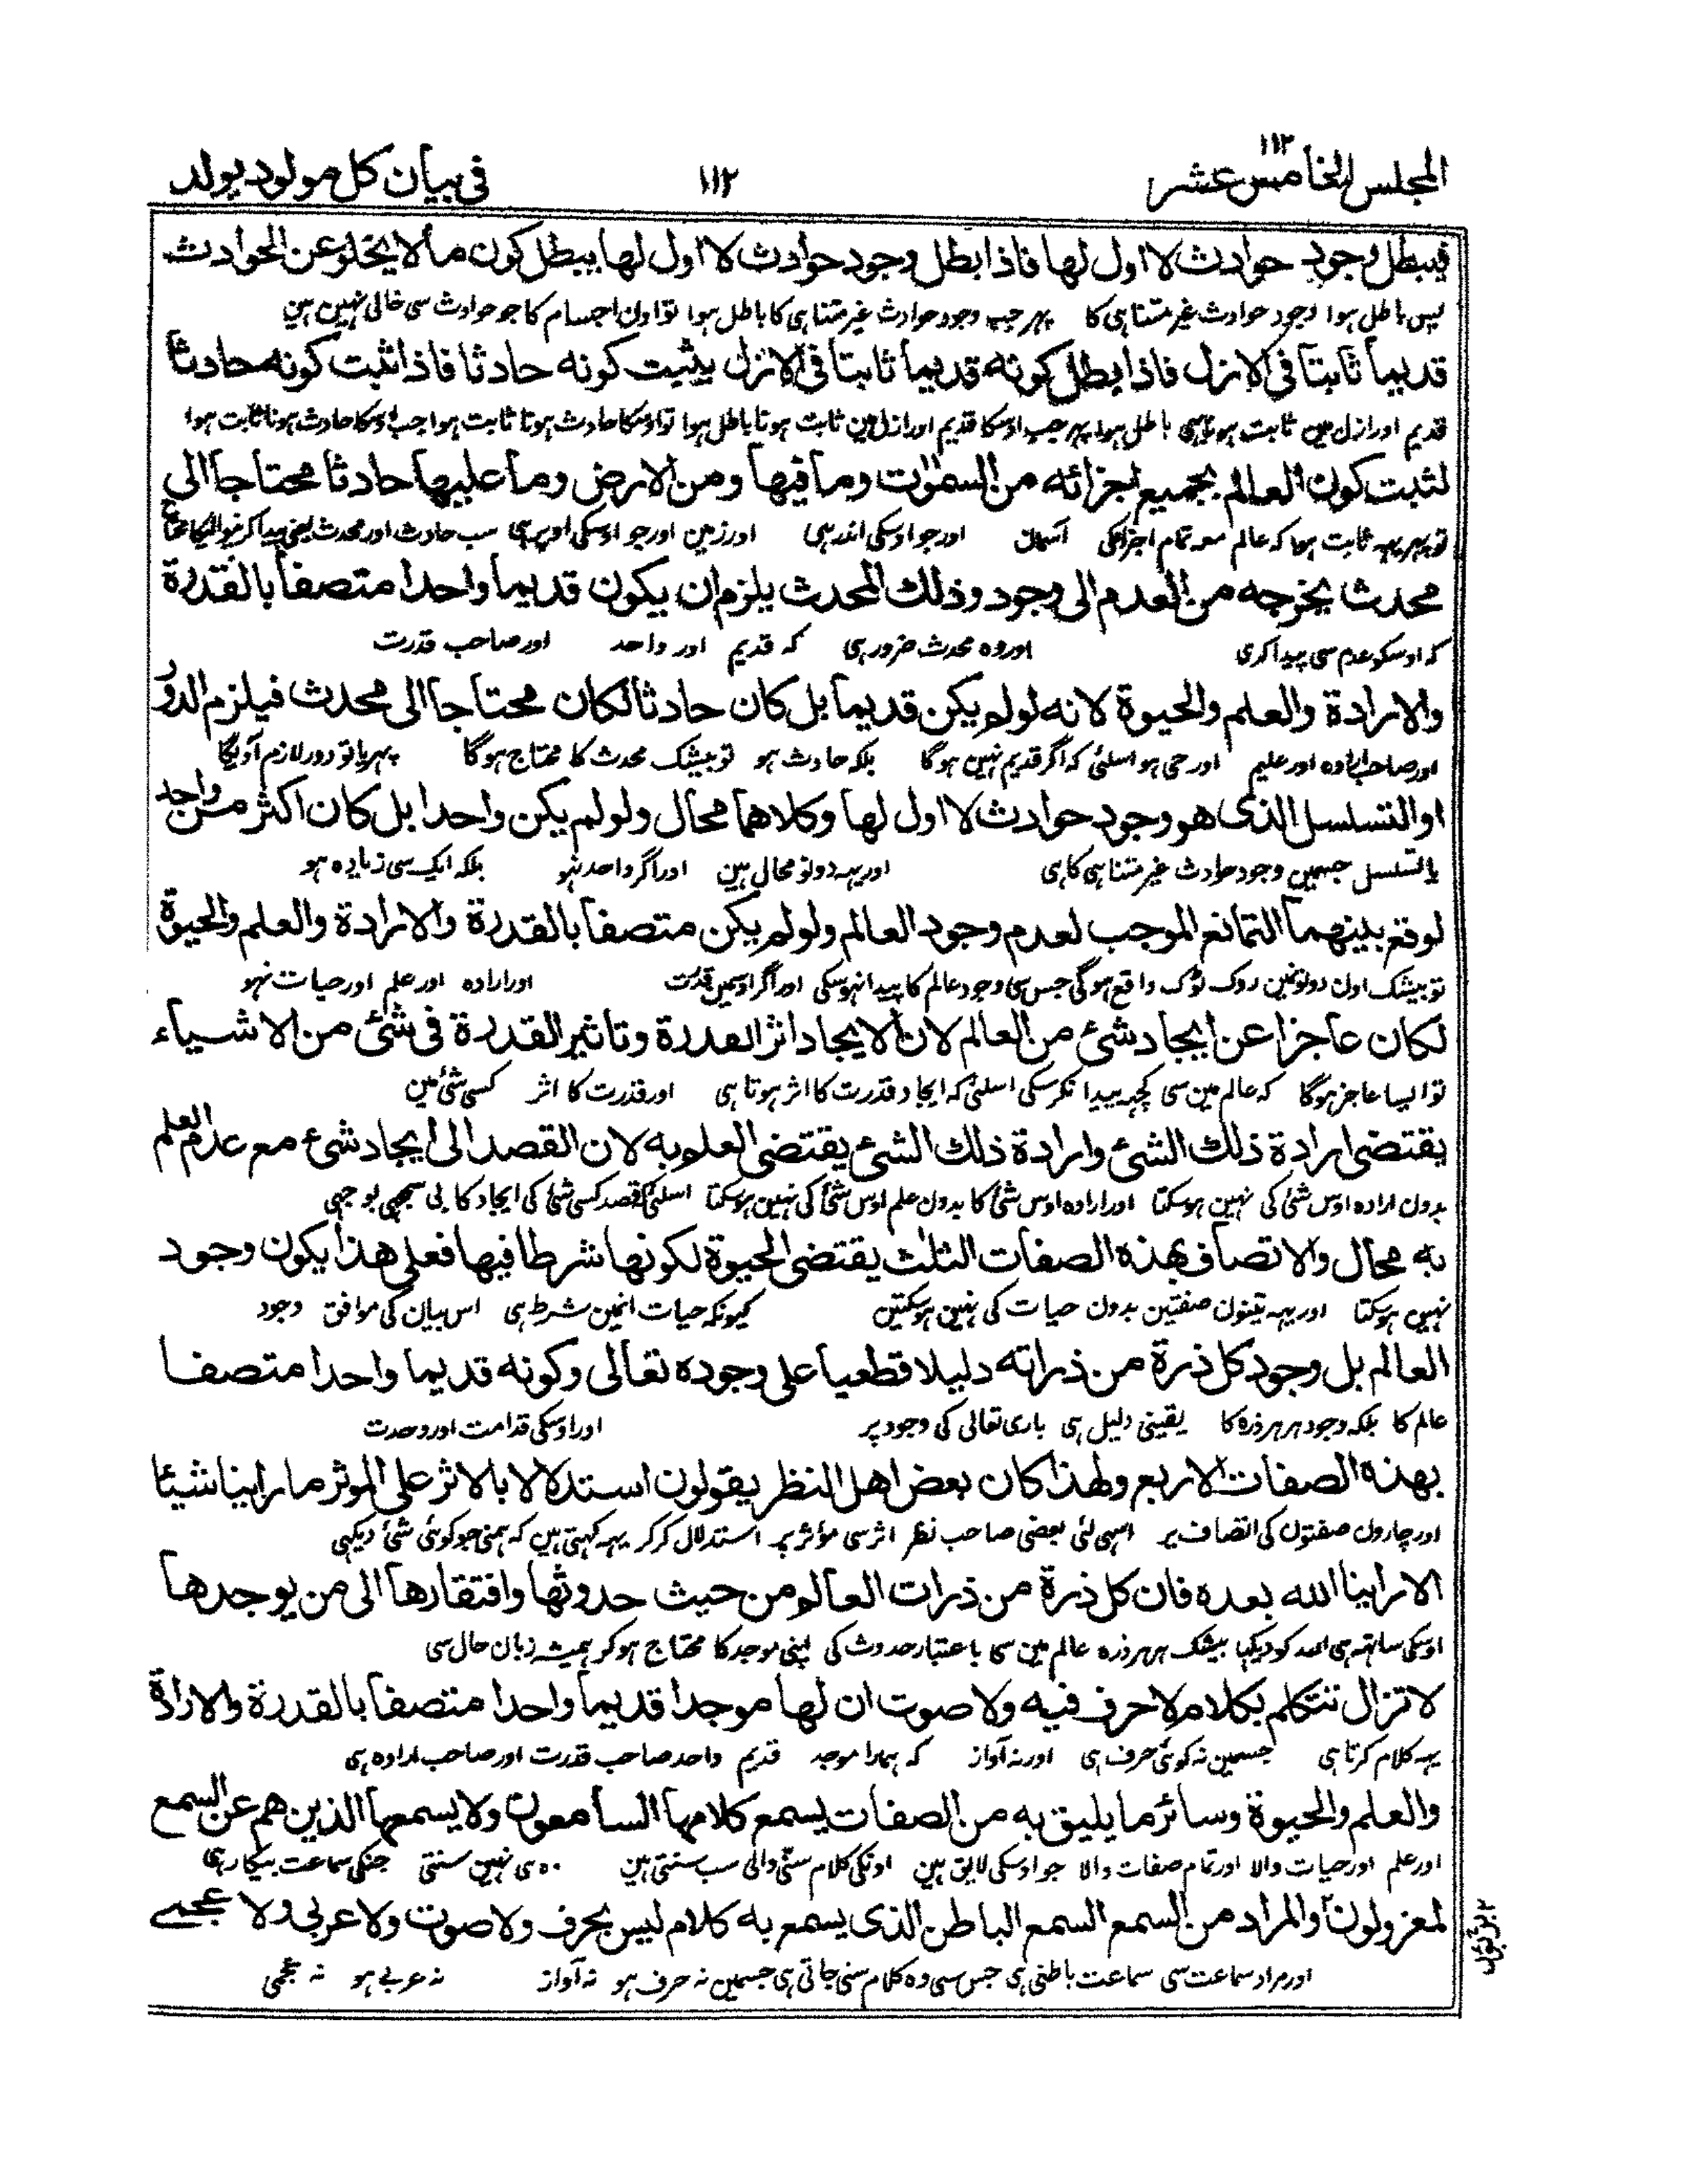 المجلس الخامس عشر ١١٢ ١١٢ فی بیان کل مولود یولد
فیبطل وجود حوادث لا اول لها فاذا بطل وجود حوادث لا اول لها یبطل کون مالا یخلو عن الحوادث
پس باطل ہوا وجود حوادث غیر متناہی کا پہر جب وجود حوادث غیر متناہی کا باطل ہوا تو اون اجسام کا جو حوادث سی خالی نہین ہین
قدیما ثابتا فی الازل فاذا بطل کونه قدیما ثابتا فی الازل یثبت کونه حادثا فاذا ثبت کونه حادثا
قدیم اور ازل مین ثابت ہونا ہی باطل ہوا پہر جب اوسکا قدیم اور ازل مین ثابت ہونا باطل ہوا تو اوسکا حادث ہونا ثابت ہوا جب اوسکا حادث ہونا ثابت ہوا
لثبت کون العالم بجمیع اجزائه من السمٰوٰت وما فیها ومن الارض وما علیها حادثا محتاجا الی
تو پہر یہہ ثابت ہوا کہ عالم معہ تمام اجزا کی آسمان اور جو اوسکی اندر ہی اور زمین اور جو اوسکی اوپر ہی سب حادث اور محدث یعنی پیدا کرنیوالیکا محتاج
محدث یخرجه من العدم الی وجود وذلك المحدث یلزم ان یکون قدیما واحدا متصفا بالقدرة
کہ اوسکو عدم سی پیدا کری اور وہ محدث ضرور ہی کہ قدیم اور واحد اور صاحب قدرت
والارادة والعلم والحیوة لانه لو لم یکن قدیما بل کان حادثا لکان محتاجا الی محدث فیلزم الدور
اور صاحب ارادہ اور علیم اور حی ہو اسلئی کہ اگر قدیم نہین ہوگا بلکہ حادث ہو تو بیشک محدث کا محتاج ہوگا پہر یا تو دور لازم آویگا
او التسلسل الذی هو وجود حوادث لا اول لها وکلاهما محال ولو لم یکن واحدا بل کان اکثر من واحد
یا تسلسل جسمین وجود حوادث غیر متناہی کا ہی اور یہہ دونو محال ہین اور اگر واحد نہو بلکہ ایک سی زیادہ ہو
لوقع بینهما التمانع الموجب لعدم وجود العالم ولو لم یکن متصفا بالقدرة والارادة والعلم والحیوة
تو بیشک اون دونونمین روک ٹوک واقع ہوگی جس سی وجود عالم کا پیدا نہوسکی اور اگر اوسمین قدرت اور ارادہ اور علم اور حیات نہو
لکان عاجزا عن ایجاد شئ من العالم لان الایجاد اثر القدرة وتاثیر القدرة فی شئ من الاشیاء
تو ایسا عاجز ہوگا کہ عالم مین سی کچہہ پیدا نکرسکی اسلئی کہ ایجاد قدرت کا اثر ہوتا ہی اور قدرت کا اثر کسی شئ مین
یقتضی ارادة ذلك الشئ وارادة ذلك الشئ یقتضی العلم به لان القصد الی ایجاد شئ مع عدم العلم
بدون ارادہ اوس شئ کی نہین ہوسکتا اور ارادہ اوس شئ کا بدون علم اوس شئ کی نہین ہوسکتا اسلئی کہ قصد کسی شئ کی ایجاد کا بی سمجہی بوجہی
به محال والاتصاف بهذه الصفات الثلث یقتضی الحیوة لکونها شرطا فیها فعلی هذا یکون وجود
نہین ہوسکتا اور یہہ تینون صفتین بدون حیات کی نہین ہوسکتین کیونکہ حیات انمین شرط ہی اس بیان کی موافق وجود
العالم بل وجود کل ذرة من ذراته دلیلا قطعیا علی وجوده تعالی وکونه قدیما واحدا متصفا
عالم کا بلکہ وجود ہر ہر ذرہ کا یقینی دلیل ہی باری تعالی کی وجود پر اور اوسکی قدامت اور وحدت
بهذه الصفات الاربع ولهذا کان بعض اهل النظر یقولون استدلالا بالاثر علی الموثر ما راینا شیئا
اور چارون صفتون کی اتصاف پر اسی لئی بعضی صاحب نظر اثر سی مؤثر پر استدلال کرکر یہہ کہتی ہین کہ ہمنی جو کوئی شئ دیکہی
الا راینا الله بعده فان کل ذرة من ذرات العالم من حیث حدوثها وافتقارها الی من یوجدها
اوسکی ساتہہ ہی اللہ کو دیکہا بیشک ہر ہر ذرہ عالم مین سی کا باعتبار حدوث کی اپنی موجد کا محتاج ہوکر ہمیشہ زبان حال سی
لا تزال تتکلم بکلام لا حرف فیه ولا صوت ان لها موجدا قدیما واحدا متصفا بالقدرة والارادة
یہہ کلام کرتا ہی جسمین نہ کوئی حرف ہی اور نہ آواز کہ ہمارا موجد قدیم واحد صاحب قدرت اور صاحب ارادہ ہی
والعلم والحیوة وسائر ما یلیق به من الصفات یسمع کلامها السامعون ولا یسمعها الذین هم عن السمع
اور علم اور حیات والا اور تمام صفات والا جو اوسکی لایق ہین اونکی کلام سنّی والی سب سنتی ہین وہ ہی نہین سنتی جنکی سماعت بیکار ہی
لمعزولون والمراد من السمع السمع الباطن الذی یسمع به کلام لیس بحرف ولا صوت ولا عربی ولا عجمی
اور مراد سماعت سی سماعت باطنی ہی جس سی وہ کلام سنی جاتی ہی جسمین نہ حرف ہو نہ آواز نہ عربی ہو نہ عجمی